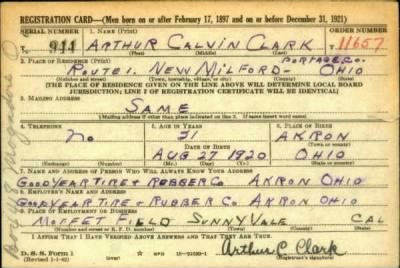 REGISTRATION CARD—(Men born on or after February 17, 1897 and on or before December 31, 1921)
SERIAL NUMBER 1. NAME (Print) ORDER NUMBER
944 ARTHUR CALVIN CLARK 11657
2. PLACE OF RESIDENCE (Print) PORTAGE CO.
ROUTE 1. NEW MILFORD - OHIO
(Number and street) (Town, township, village, or city) (County) (State)
[THE PLACE OF RESIDENCE GIVEN ON THE LINE ABOVE WILL DETERMINE LOCAL BOARD
JURISDICTION; LINE 2 OF REGISTRATION CERTIFICATE WILL BE IDENTICAL]
3. MAILING ADDRESS
SAME
[Mailing address if other than place indicated on line 2. If same insert word same]
4. TELEPHONE 5. AGE IN YEARS 6. PLACE OF BIRTH
NO 21 AKRON
DATE OF BIRTH (Town or county)
AUG 27 1920 OHIO
(Exchange) (Number) (Mo.) (Day) (Yr.) (State or country)
7. NAME AND ADDRESS OF PERSON WHO WILL ALWAYS KNOW YOUR ADDRESS
GOODYEAR TIRE & RUBBER CO AKRON OHIO
8. EMPLOYER'S NAME AND ADDRESS
GOODYEAR TIRE & RUBBER CO. AKRON OHIO
9. PLACE OF EMPLOYMENT OR BUSINESS
MOFFET FIELD SUNNYVALE CAL
(Number and street or R. F. D. number) (Town) (County) (State)
I AFFIRM THAT I HAVE VERIFIED ABOVE ANSWERS AND THAT THEY ARE TRUE.
D. S. S. Form 1
(Revised 1-1-42) (over) Arthur C. Clark
(Registrant's signature)